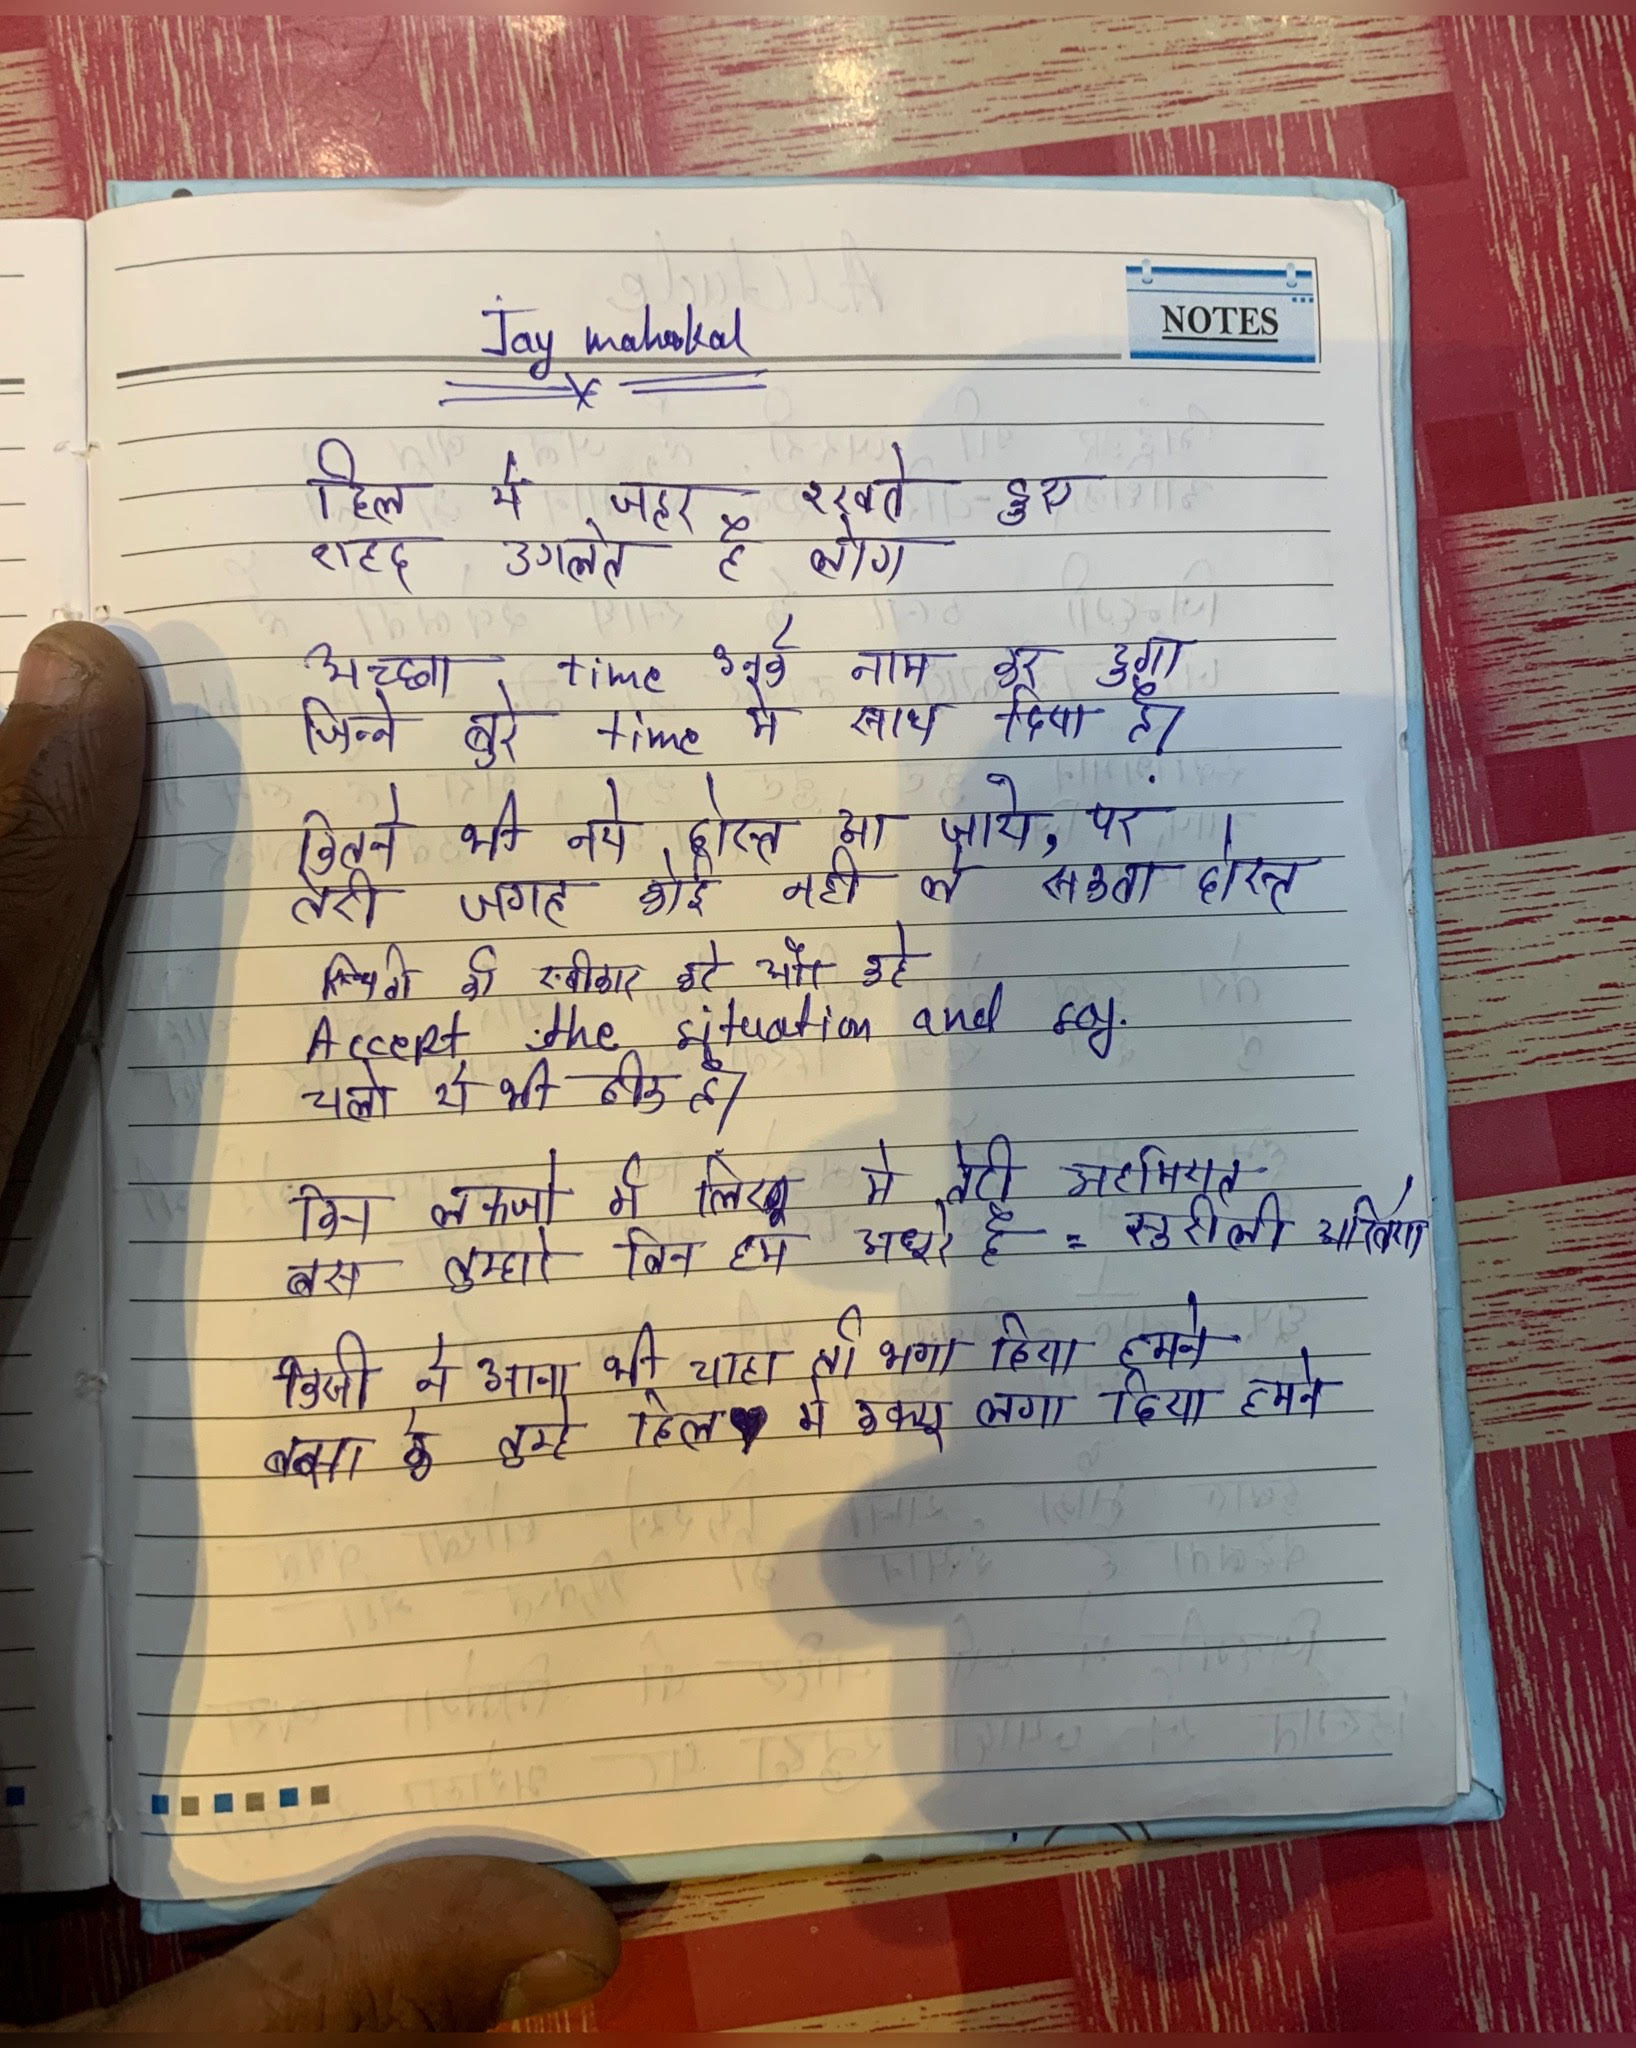 NOTES
Jay mahakal
दिल में जहर रखते हुए
शहद उगलते है लोग
अच्छा time उनके नाम कर दुगा
जिन्ने बुरे time मे साथ दिया है।
कितने भी नये दोस्त आ जाये, पर
तेरी जगह कोई नही ले सकता दोस्त
को स्वीकार करे और कहे
Accept the situation and say.
चलो ये भी ठीक है।
किन लफ्जो में लिखू मे तेरी अहमियत
बस तुम्हारे बिन हम अधूरे है = सुरीली अखियां
किसी ने आना भी चाहा तो भगा दिया हमने
बसा के तुम्हे दिल में लगा दिया हमने